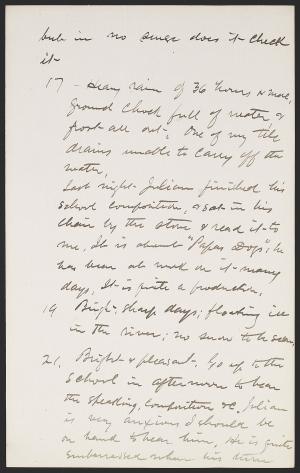 but in no sense does it check
it
17 - Heavy rain of 36 hours & more,
ground chock full of water, &
frost all out. One of my tile
drains unable to carry off the
water.
Last night Julian finished his
school composition, & sat in his
chair by the stove & read it to
me, It is about "Papas Dogs"; he
has been at work on it many
days, It is quite a production.
19 Bright, sharp days; floating ice
in the river; no snow to be seen,
21. Bright & pleasant. Go up to the
school in afternoon to hear
the speaking, composition &c. Julian
is very anxious I should be
on hand to hear him, He is quite
embarrassed when his turn